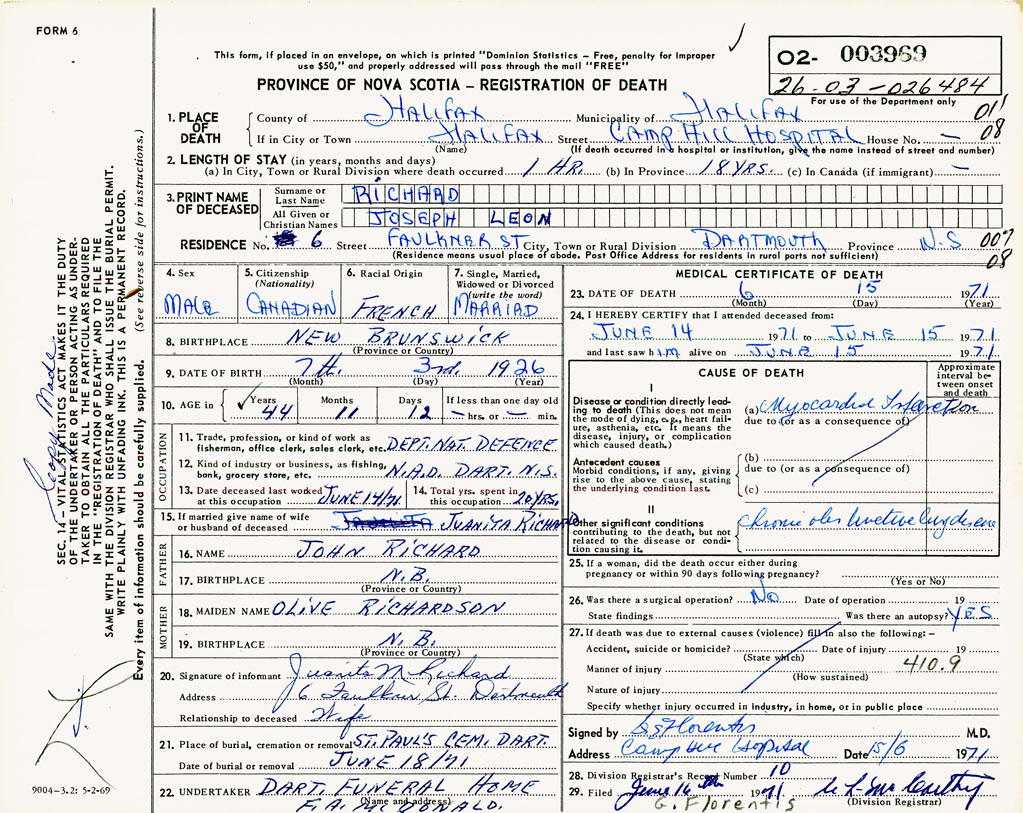 FORM 6
This form, if placed in an envelope, on which is printed "Dominion Statistics – Free, penalty for improper
use $50," and properly addressed will pass through the mail "FREE"
PROVINCE OF NOVA SCOTIA – REGISTRATION OF DEATH
02- 003969
26-03-026484
For use of the Department only
1. PLACE OF DEATH
County of HALIFAX Municipality of HALIFAX 011
If in City or Town HALIFAX Street CAMP HILL HOSPITAL House No. — 08
(Name) (If death occurred in a hospital or institution, give the name instead of street and number)
2. LENGTH OF STAY (in years, months and days)
(a) In City, Town or Rural Division where death occurred 1 HR. (b) In Province 18 YRS. (c) In Canada (if immigrant) —
3. PRINT NAME OF DECEASED
Surname or Last Name RICHARD
All Given or Christian Names JOSEPH LEON
RESIDENCE No. 6 Street FAULKNER ST City, Town or Rural Division DARTMOUTH Province N.S 007
(Residence means usual place of abode. Post Office Address for residents in rural parts not sufficient) 08
4. Sex
MALE
5. Citizenship
(Nationality)
CANADIAN
6. Racial Origin
FRENCH
7. Single, Married,
Widowed or Divorced
(write the word)
MARRIAD
8. BIRTHPLACE NEW BRUNSWICK
(Province or Country)
9. DATE OF BIRTH 7th. 3rd. 1926
(Month) (Day) (Year)
10. AGE in Years 44 Months 11 Days 12 If less than one day
— hrs. or — min.
OCCUPATION
11. Trade, profession, or kind of work as
fisherman, office clerk, sales clerk, etc. DEPT. NAT. DEFENCE
12. Kind of industry or business, as fishing,
bank, grocery store, etc. N.A.D. DART. N.S.
13. Date deceased last worked
at this occupation JUNE 14/71
14. Total yrs. spent in
this occupation 20 YRS,
15. If married give name of wife
or husband of deceased JUANITA RICHARD
FATHER
16. NAME JOHN RICHARD
17. BIRTHPLACE N.B.
(Province or Country)
MOTHER
18. MAIDEN NAME OLIVE RICHARDSON
19. BIRTHPLACE N.B.
(Province or Country)
20. Signature of informant Juanita M Richard
Address 6 Faulkner St. Dartmouth
Relationship to deceased Wife
21. Place of burial, cremation or removal ST. PAUL'S CEM. DART.
Date of burial or removal JUNE 18/71
22. UNDERTAKER DART FUNERAL HOME
(Name and address)
F.A. McDONALD.
MEDICAL CERTIFICATE OF DEATH
23. DATE OF DEATH 6 15 1971
(Month) (Day) (Year)
24. I HEREBY CERTIFY that I attended deceased from:
JUNE 14 1971 to JUNE 15 1971
and last saw him alive on JUNE 15 1971
CAUSE OF DEATH
Approximate
interval be-
tween onset
and death
I
Disease or condition directly lead-
ing to death (This does not mean
the mode of dying, e.g., heart fail-
ure, asthenia, etc. It means the
disease, injury, or complication
which caused death.)
(a) Myocardial Infarction
due to (or as a consequence of)
Antecedent causes
Morbid conditions, if any, giving
rise to the above cause, stating
the underlying condition last.
(b)
due to (or as a consequence of)
(c)
II
Other significant conditions
contributing to the death, but not
related to the disease or condi-
tion causing it.
Chronic obstructive lung disease
25. If a woman, did the death occur either during
pregnancy or within 90 days following pregnancy?
(Yes or No)
26. Was there a surgical operation? No Date of operation 19
State findings Was there an autopsy? YES
27. If death was due to external causes (violence) fill in also the following: –
Accident, suicide or homicide? Date of injury 19
(State which)
410.9
Manner of injury
(How sustained)
Nature of injury
Specify whether injury occurred in industry, in home, or in public place
Signed by Florentis M.D.
Address Camp Hill Hospital Date 15/6 1971
28. Division Registrar's Record Number 10
29. Filed June 16th 1971
(Division Registrar)
G. Florentis
Copy Made
SEC. 14 – VITAL STATISTICS ACT MAKES IT THE DUTY
OF THE UNDERTAKER OR PERSON ACTING AS UNDER-
TAKER TO OBTAIN ALL THE PARTICULARS REQUIRED
IN THE "REGISTRATION OF DEATH" AND TO FILE THE
SAME WITH THE DIVISION REGISTRAR WHO SHALL ISSUE THE BURIAL PERMIT.
WRITE PLAINLY WITH UNFADING INK. THIS IS A PERMANENT RECORD.
Every item of information should be carefully supplied. (See reverse side for instructions.)
9004-3.2: 5-2-69